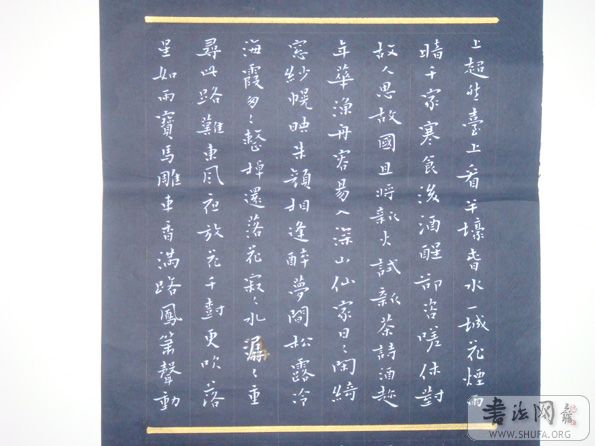 上超然臺上看半壕春水一城花煙雨
暗千家寒食後酒醒卻咨嗟休對
故人思故國且將新火試新茶詩酒趁
年華漁舟容易入深山仙家日〻閑綺
窓紗幌映朱顏相逢醉夢間松露冷
海霞匆〻整棹還落花寂〻水潺〻重
尋此路難東風夜放花千樹更吹落
星如雨寶馬雕車香滿路鳳簫聲動
書法网
WWW.SHUFA.ORG